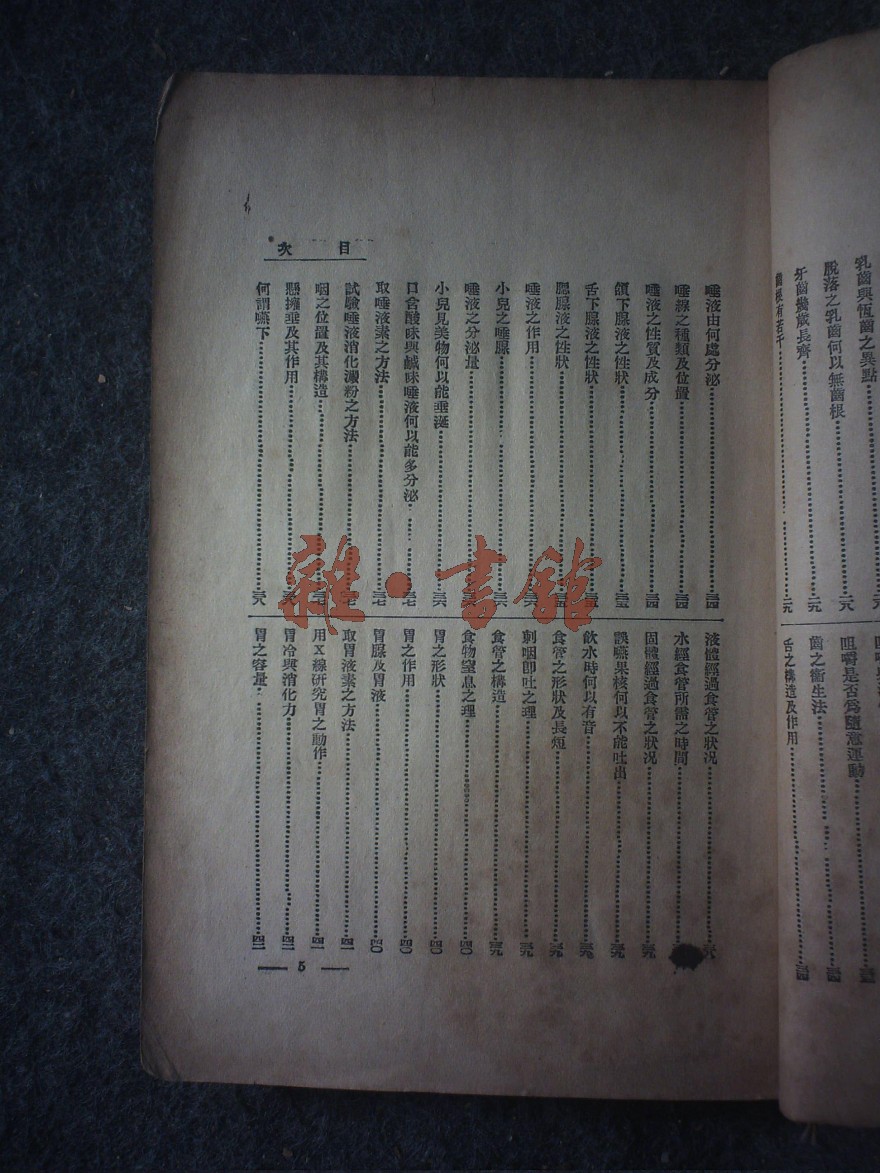 乳齒與恆齒之異點
脫落之乳齒何以無齒根……二九
牙齒幾歲長齊……二九
齒根有若干……二九
咀嚼是否爲隨意運動
齒之衞生法……三四
舌之構造及作用……三四
目次
唾液由何處分泌……三四
唾線之種類及位置……三四
唾液之性質及成分……三四
頷下腺液之性狀……三五
舌下腺液之性狀……三五
腮腺液之性狀……三五
唾液之作用……三六
小兒之唾腺……三六
唾液之分泌量
小兒見美物何以能垂涎……三六
口含酸味與鹹味唾液何以能多分泌……三七
取唾液素之方法……三七
試驗唾液消化澱粉之方法……三七
咽之位置及其構造……三七
懸擁垂及其作用……三八
何謂嚥下……三八
液體經過食管之狀況……三八
水經食管所需之時間
固體經過食管之狀況……三九
誤嚥果核何以不能吐出……三九
飲水時何以有音……三九
食管之形狀及長短……三九
刺咽卽吐之理……三九
食管之構造……三九
食物窒息之理……四〇
胃之形狀……四〇
胃之作用……四〇
胃腺及胃液……四〇
取胃液素之方法……四一
用X線研究胃之動作……四一
胃冷與消化力……四二
胃之容量……四二
5
雜·書館